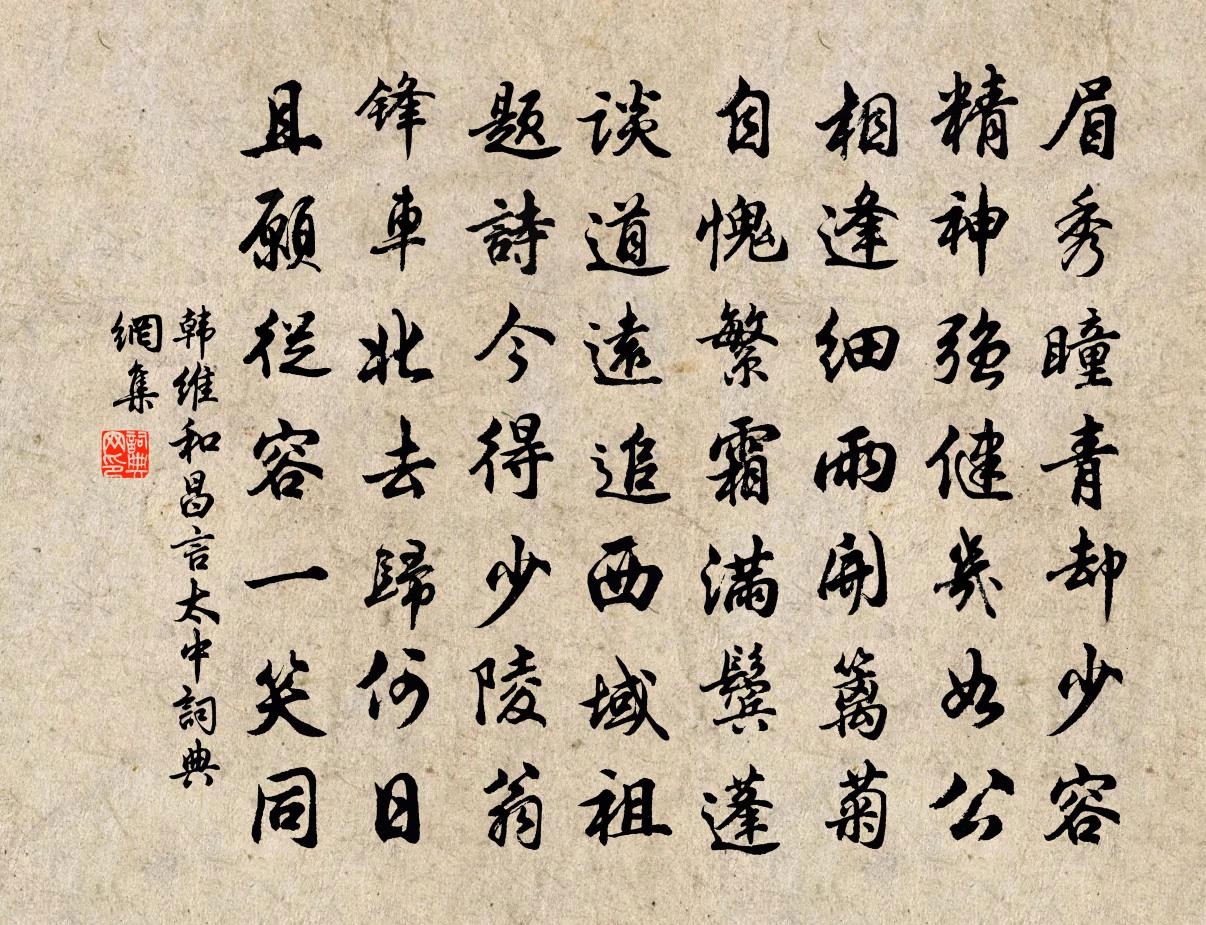 眉秀瞳青却少容
精神强健幾如公
相逢细雨開篱菊
自愧繁霜满鬓蓬
谈道遠追西域祖
题詩今得少陵翁
锋車北去歸何日
且願從容一笑同
韩维和昌言太中詞典
網集
詞典網印